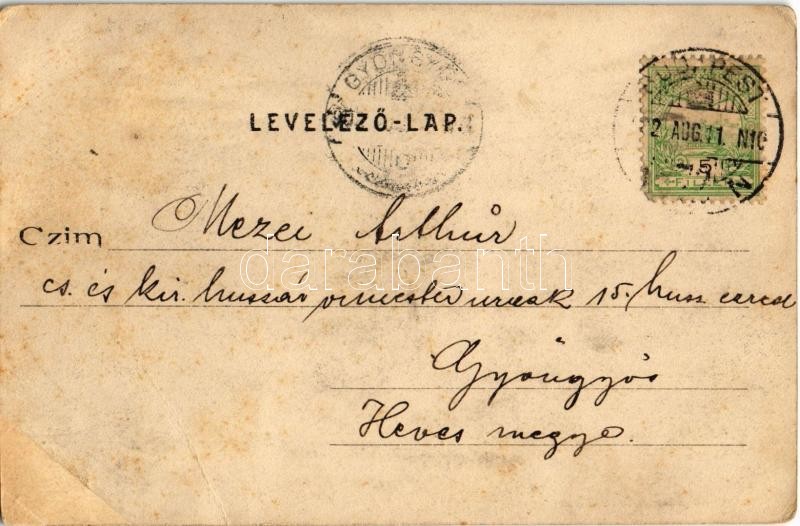 GYÖNGYÖS
BUDAPEST
2 AUG. 11. N10
LEVELEZŐ-LAP.
5
Czim Mezei Arthúr
cs. és kir. huszár őrmester urnak 15. husz. ezred
Gyöngyös
Heves megye.
darabanth